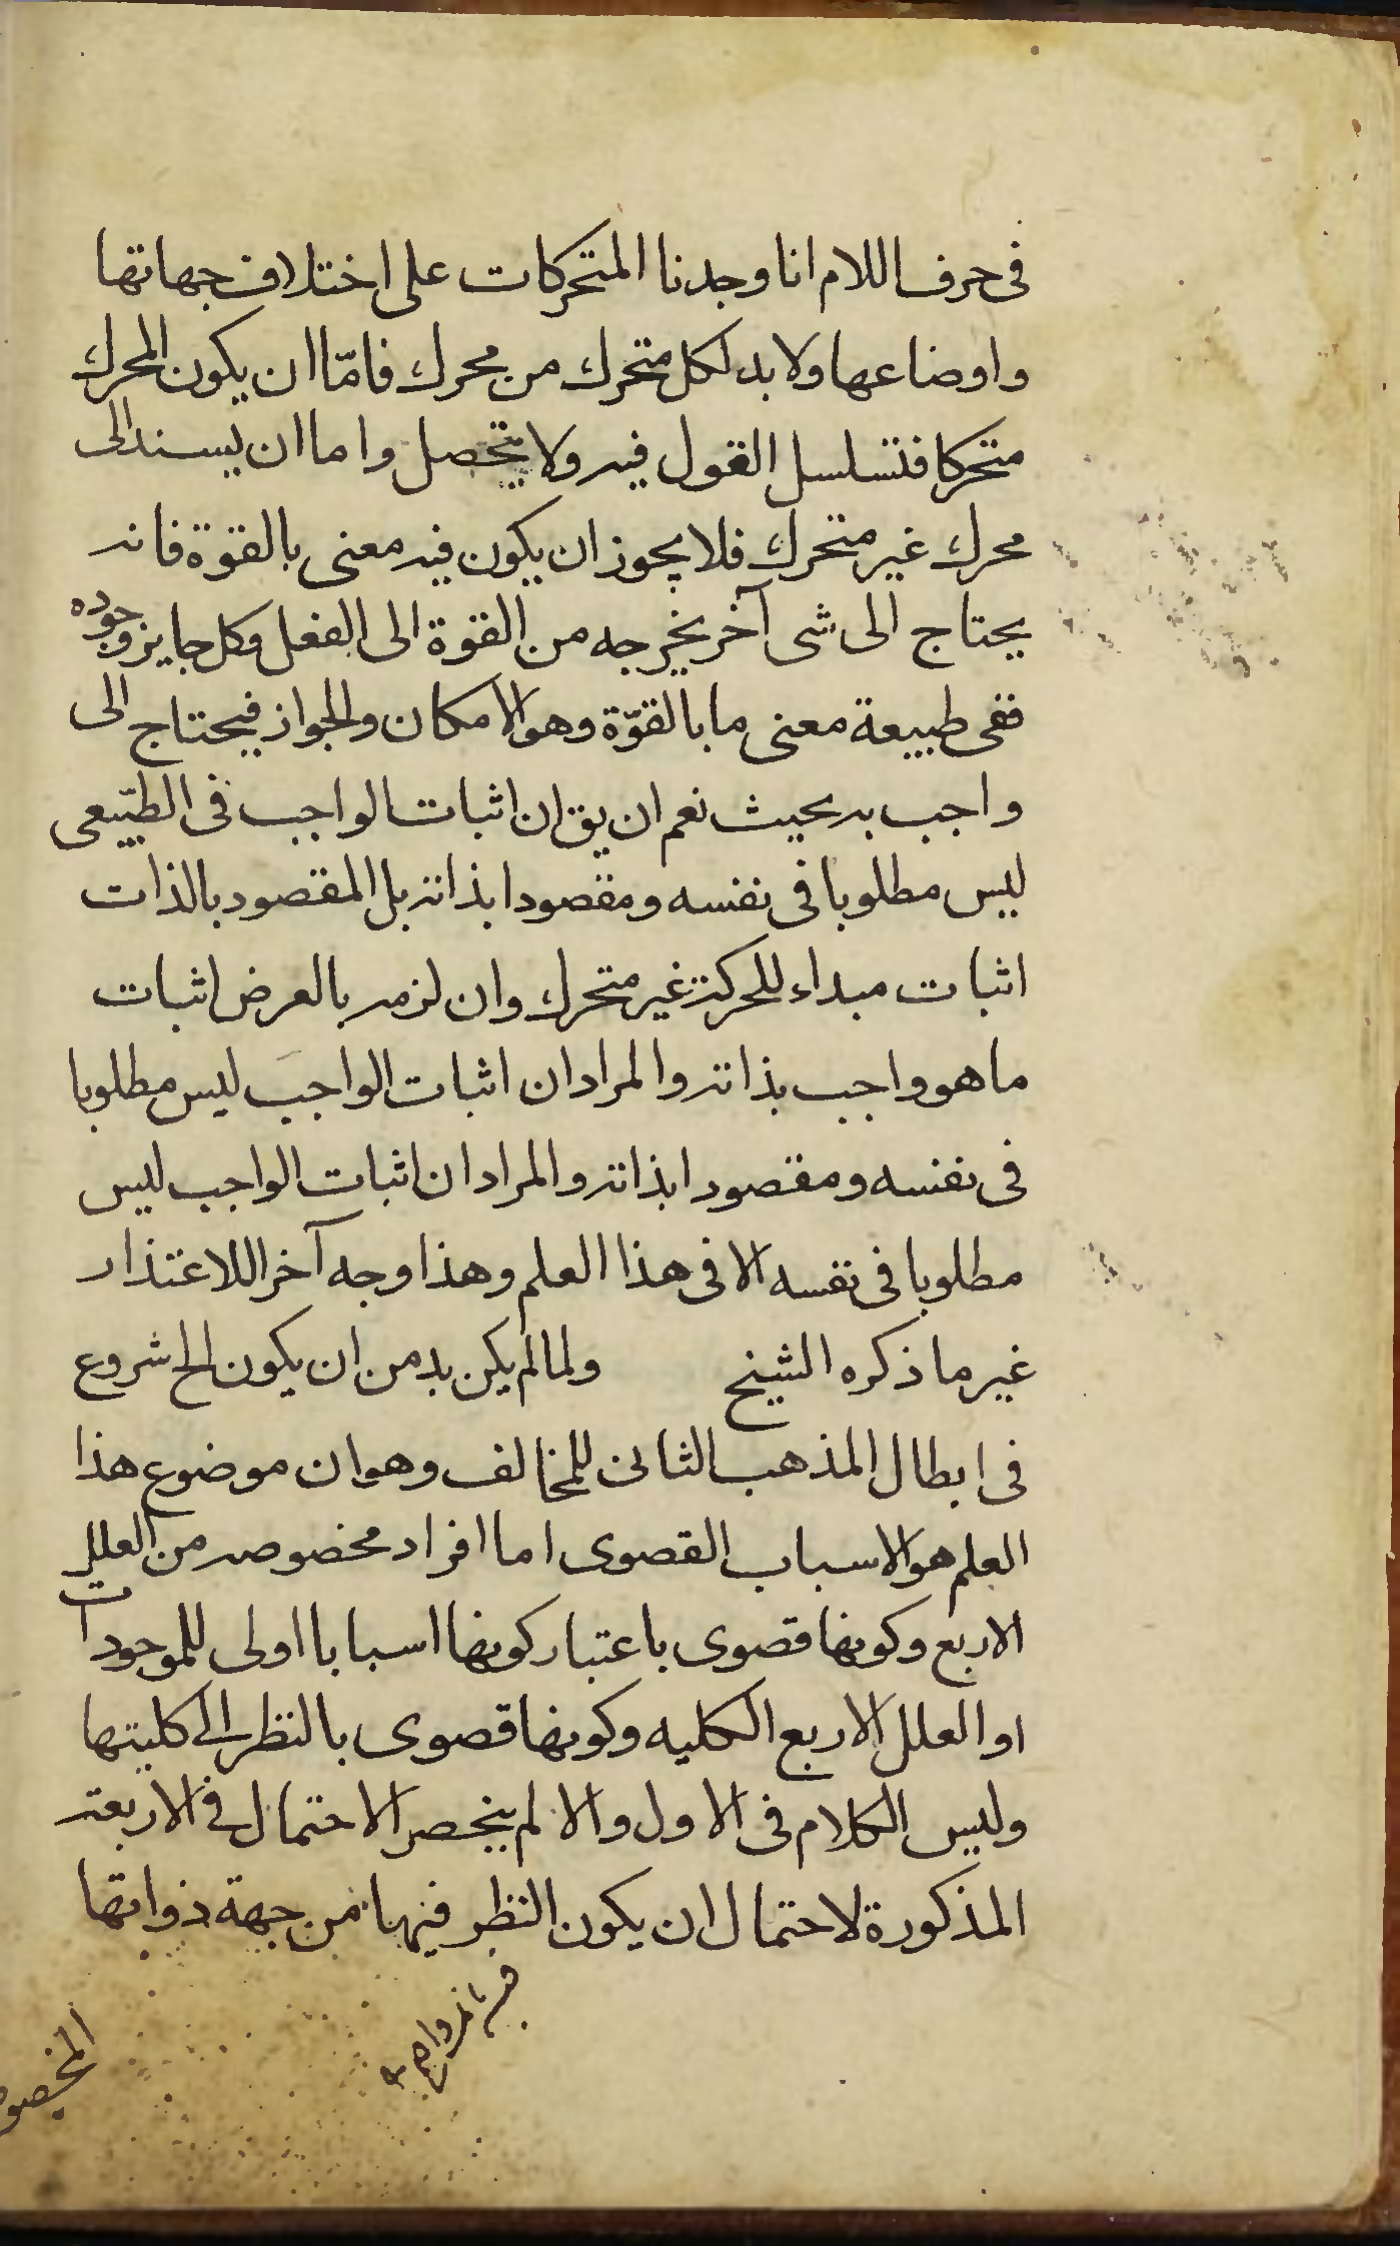 فى حرف اللام انا وجدنا المتحركات على اختلاف جهاتها
واوضاعها ولا بد لكل متحرك من محرك فامّا ان يكون المحرك
متحركا فتسلسل القول فيه ولا يتحصل واما ان يسند الى
محرك غير متحرك فلا يجوز ان يكون فيه معنى بالقوة فانه
يحتاج الى شى آخر يخرجه من القوة الى الفعل وكل جايز وجوده
ففى طبيعة معنى ما بالقوّة وهو الامكان والجواز فيحتاج الى
واجب به يحيث نعم ان يق ان اثبات الواجب فى الطبّيعى
ليس مطلوبا فى نفسه ومقصودا بذاته بل المقصود بالذات
اثبات مبداء للحركة غير متحرك وان لزمه بالعرض اثبات
ما هو واجب بذاته والمراد ان اثبات الواجب ليس مطلوبا
فى نفسه ومقصودا بذاته والمراد ان اثبات الواجب ليس
مطلوبا فى نفسه الا فى هذا العلم وهذا وجه آخر اللاعتذار
غير ما ذكره الشيخ ولما لم يكن بد من ان يكون الخ شروع
فى ابطال المذهب الثانى للمخالف وهو ان موضوع هذا
العلم هو الاسباب القصوى اما افراد مخصوصه من العلل
الاربع وكونها قصوى باعتبار كونها اسبابا اولى للموجودات
او العلل الاربع الكليه وكونها قصوى بالنظر الى كليتها
وليس الكلام فى الاول والا لم ينحصر الاحتمال فى الاربعة
المذكورة لاحتمال ان يكون النظر فيها من جهة ذواتها